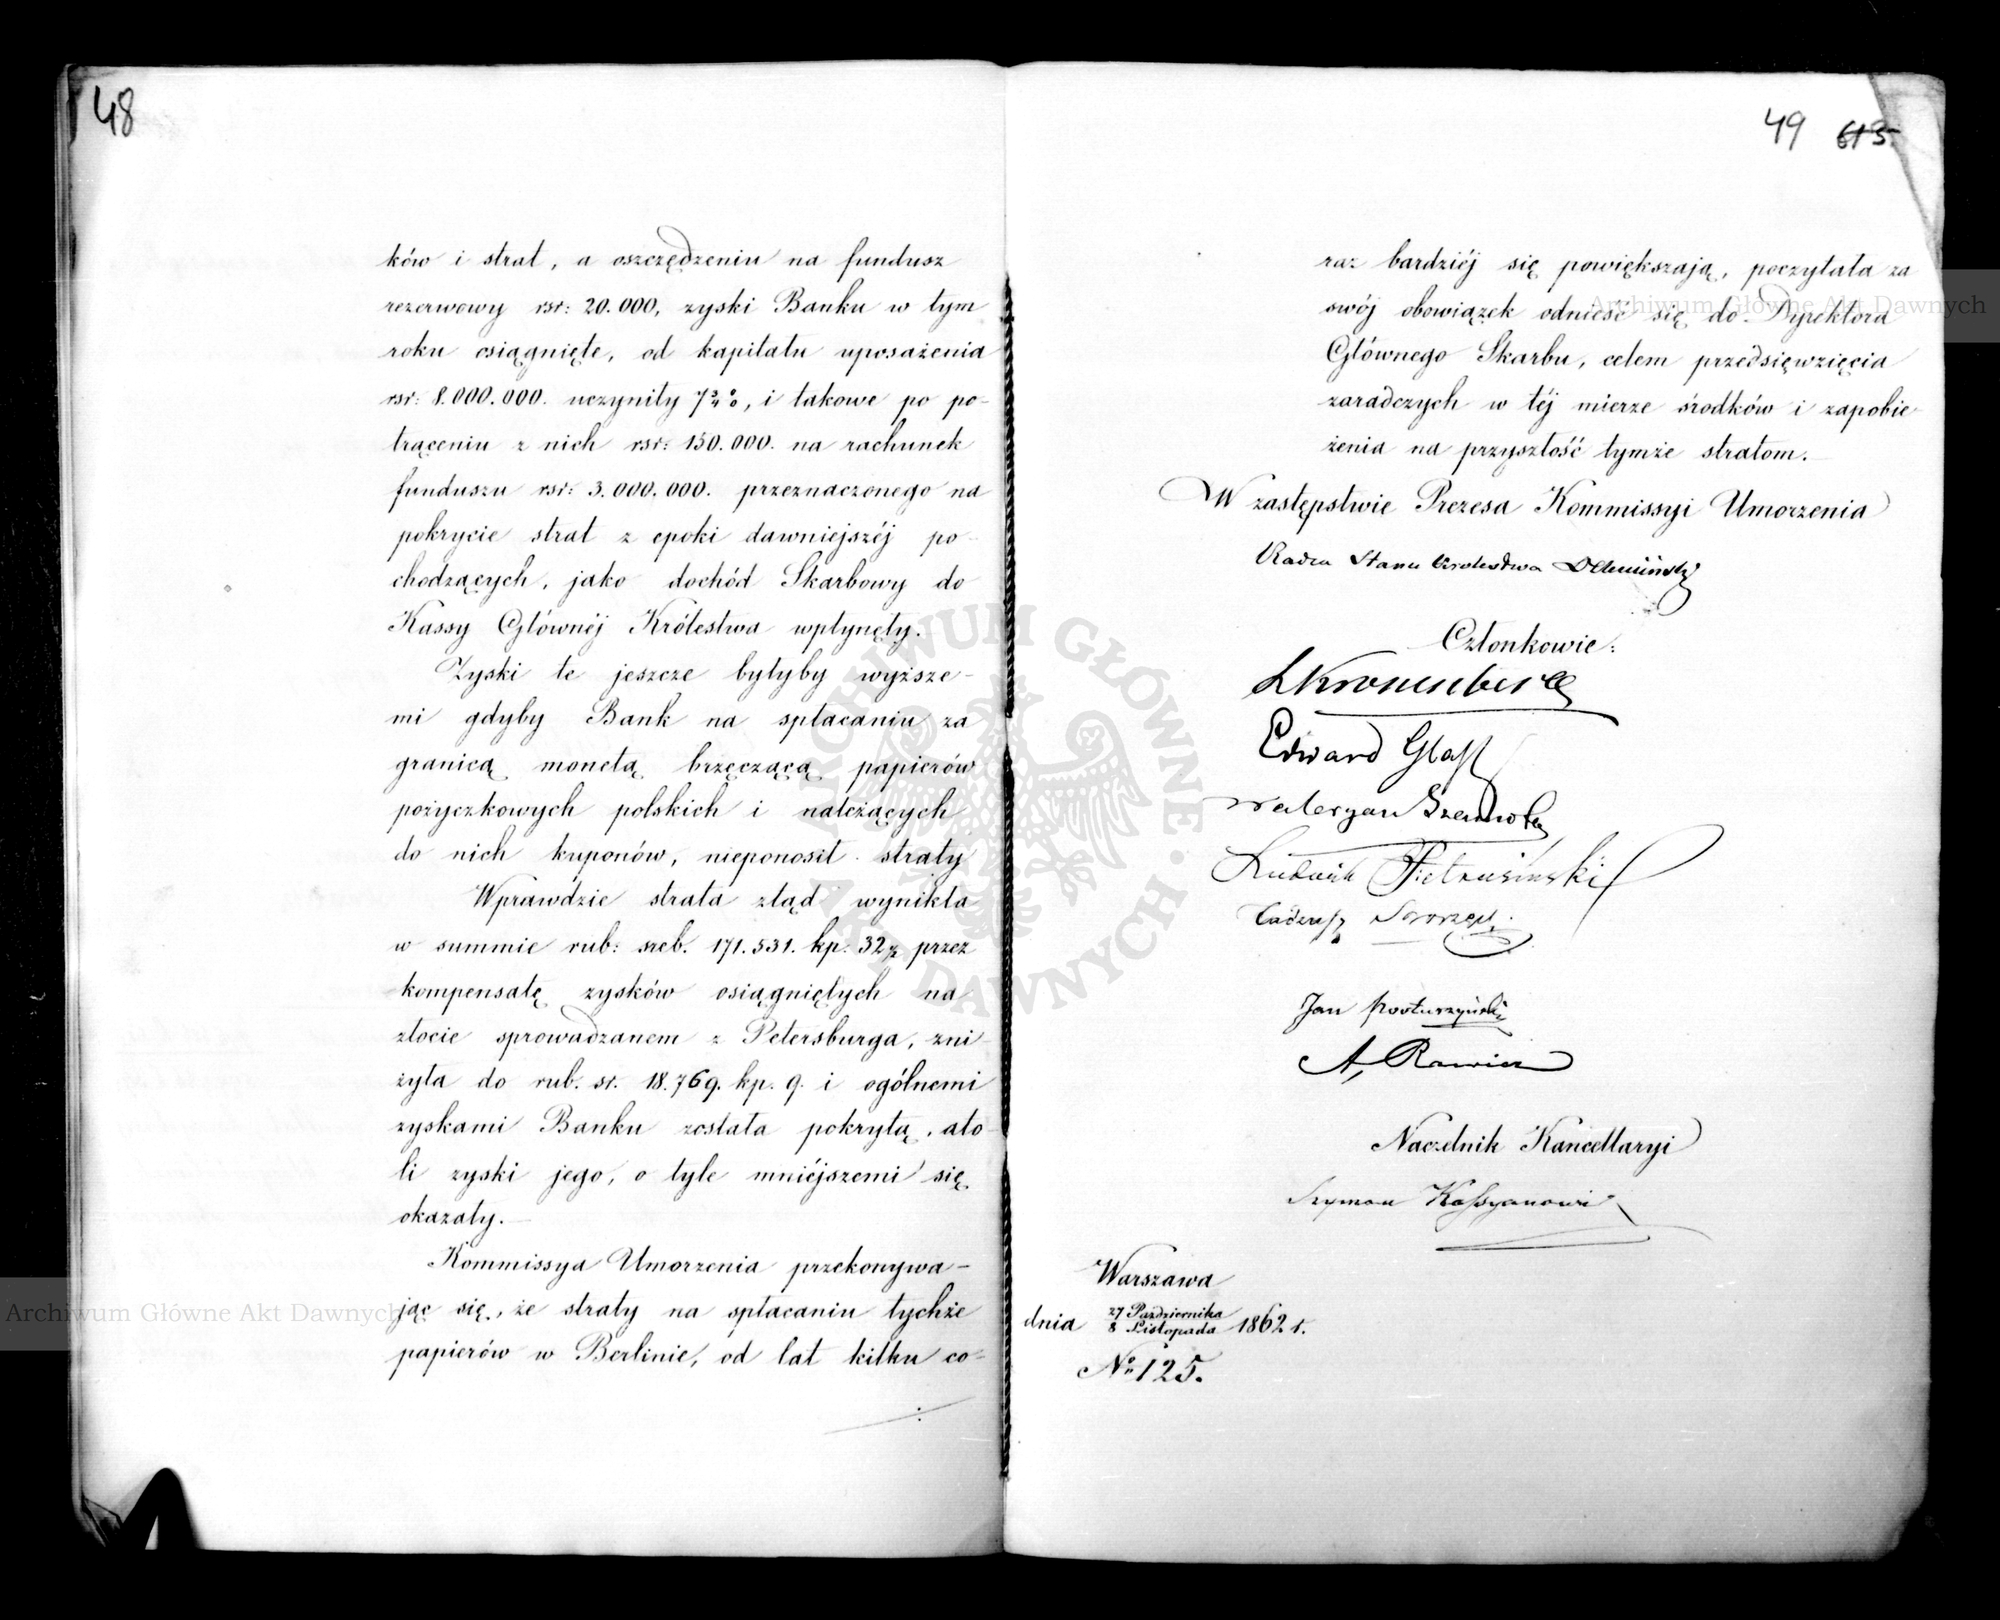 48
ków i strat, a oszczędzeniu na fundusz
rezerwowy rsr: 20.000, zyski Banku w tym
roku osiągnięte, od kapitału uposażenia
rsr: 8.000.000. uczyniły 7¾%, i takowe po po-
trąceniu z nich rsr: 150.000. na rachunek
funduszu rsr: 3.000.000. przeznaczonego na
pokrycie strat z epoki dawniejszéj po-
chodzących, jako dochód Skarbowy do
Kassy Głównéj Królestwa wpłynęły.
Zyski te jeszcze byłyby wyższe-
mi gdyby Bank na spłacaniu za
granicą monetą brzęczącą papierów
pożyczkowych polskich i należących
do nich kuponów, nieponosił straty
Wprawdzie strata ztąd wynikła
w summie rub: sreb. 171.531. kp: 32½ przez
kompensatę zysków osiągniętych na
złocie sprowadzanem z Petersburga, zni-
żyła do rub. sr. 18.769. kp. 9. i ogólnemi
zyskami Banku została pokrytą, ato-
li zyski jego, o tyle mniéjszemi się
okazały.—
Kommissya Umorzenia przekonywa-
jąc się, że straty na spłacaniu tychże
papierów w Berlinie, od lat kilku co-
49 613.
raz bardziéj się powiększają, poczytała za
swój obowiązek odnieść się do Dyrektora
Głównego Skarbu, celem przedsięwzięcia
zaradczych w téj mierze środków i zapobie-
żenia na przyszłość tymże stratom.—
W zastępstwie Prezesa Kommissyi Umorzenia
Radca Stanu Królestwa
Członkowie:
LKronenberg
Edward
Waleryan
Ludwik Pietrusiński
Tadeusz
Jan
A. Rawicz
Naczelnik Kancellaryi
Szymon
Warszawa
dnia 27 Października
8 Listopada 1862 r.
№ 125.
ARCHIWUM GŁÓWNE AKT DAWNYCH
Archiwum Główne Akt Dawnych
Archiwum Główne Akt Dawnych